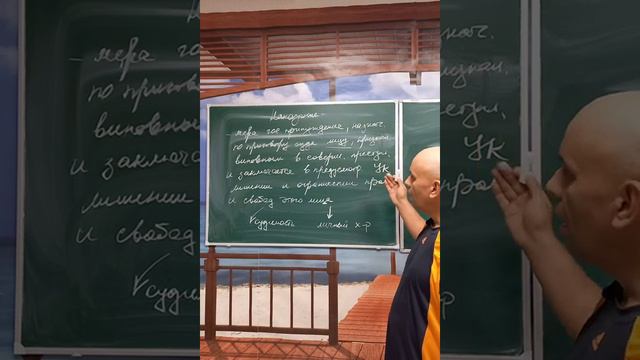 Наказание -
мера гос принуждения, назнач.
по приговору суда лицу, признан.
виновным в соверш. преступл.
и заключается в предусмотр УК
лишении и ограничении прав
и свобод этого лица
√судимость личный х-р